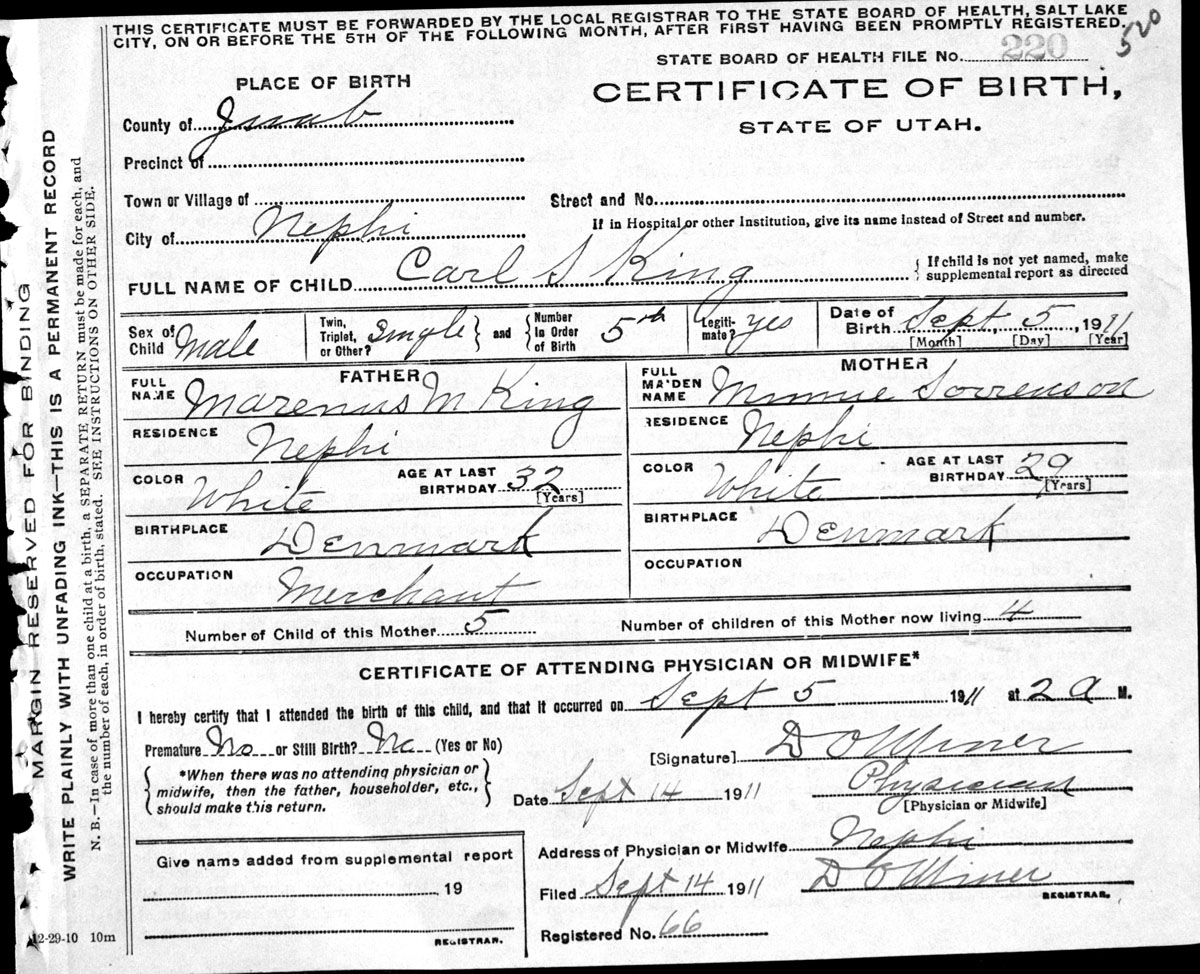 THIS CERTIFICATE MUST BE FORWARDED BY THE LOCAL REGISTRAR TO THE STATE BOARD OF HEALTH, SALT LAKE
CITY, ON OR BEFORE THE 5TH OF THE FOLLOWING MONTH, AFTER FIRST HAVING BEEN PROMPTLY REGISTERED.
520
STATE BOARD OF HEALTH FILE No. 220
PLACE OF BIRTH
CERTIFICATE OF BIRTH,
STATE OF UTAH.
County of Juab
Precinct of
Town or Village of
Street and No.
If in Hospital or other Institution, give its name instead of Street and number.
City of Nephi
FULL NAME OF CHILD Carl S King { If child is not yet named, make
supplemental report as directed
Sex of
Child Male
Twin,
Triplet,
or Other? Single } and { Number
In Order
of Birth 5th
Legiti-
mate? yes
Date of
Birth Sept, 5, 1911
[Month] [Day] [Year]
FATHER
FULL
NAME Marenus M King
RESIDENCE Nephi
COLOR White AGE AT LAST
BIRTHDAY 32
[Years]
BIRTHPLACE Denmark
OCCUPATION Merchant
MOTHER
FULL
MAIDEN
NAME Minnie Sorrenson
RESIDENCE Nephi
COLOR White AGE AT LAST
BIRTHDAY 29
[Years]
BIRTHPLACE Denmark
OCCUPATION
Number of Child of this Mother 5 Number of children of this Mother now living 4
CERTIFICATE OF ATTENDING PHYSICIAN OR MIDWIFE*
I hereby certify that I attended the birth of this child, and that it occurred on Sept 5 1911 at 2 a M.
Premature No or Still Birth? No (Yes or No)
{ *When there was no attending physician or
midwife, then the father, householder, etc.,
should make this return. }
[Signature] D O Miner
Date Sept 14 1911 Physician
[Physician or Midwife]
Give name added from supplemental report
19
REGISTRAR.
Address of Physician or Midwife Nephi
Filed Sept 14 1911 D O Miner
REGISTRAR.
Registered No. 66
MARGIN RESERVED FOR BINDING
WRITE PLAINLY WITH UNFADING INK—THIS IS A PERMANENT RECORD
N. B.—In case of more than one child at a birth, a SEPARATE RETURN must be made for each, and
the number of each, in order of birth, stated. SEE INSTRUCTIONS ON OTHER SIDE.
12-29-10 10m